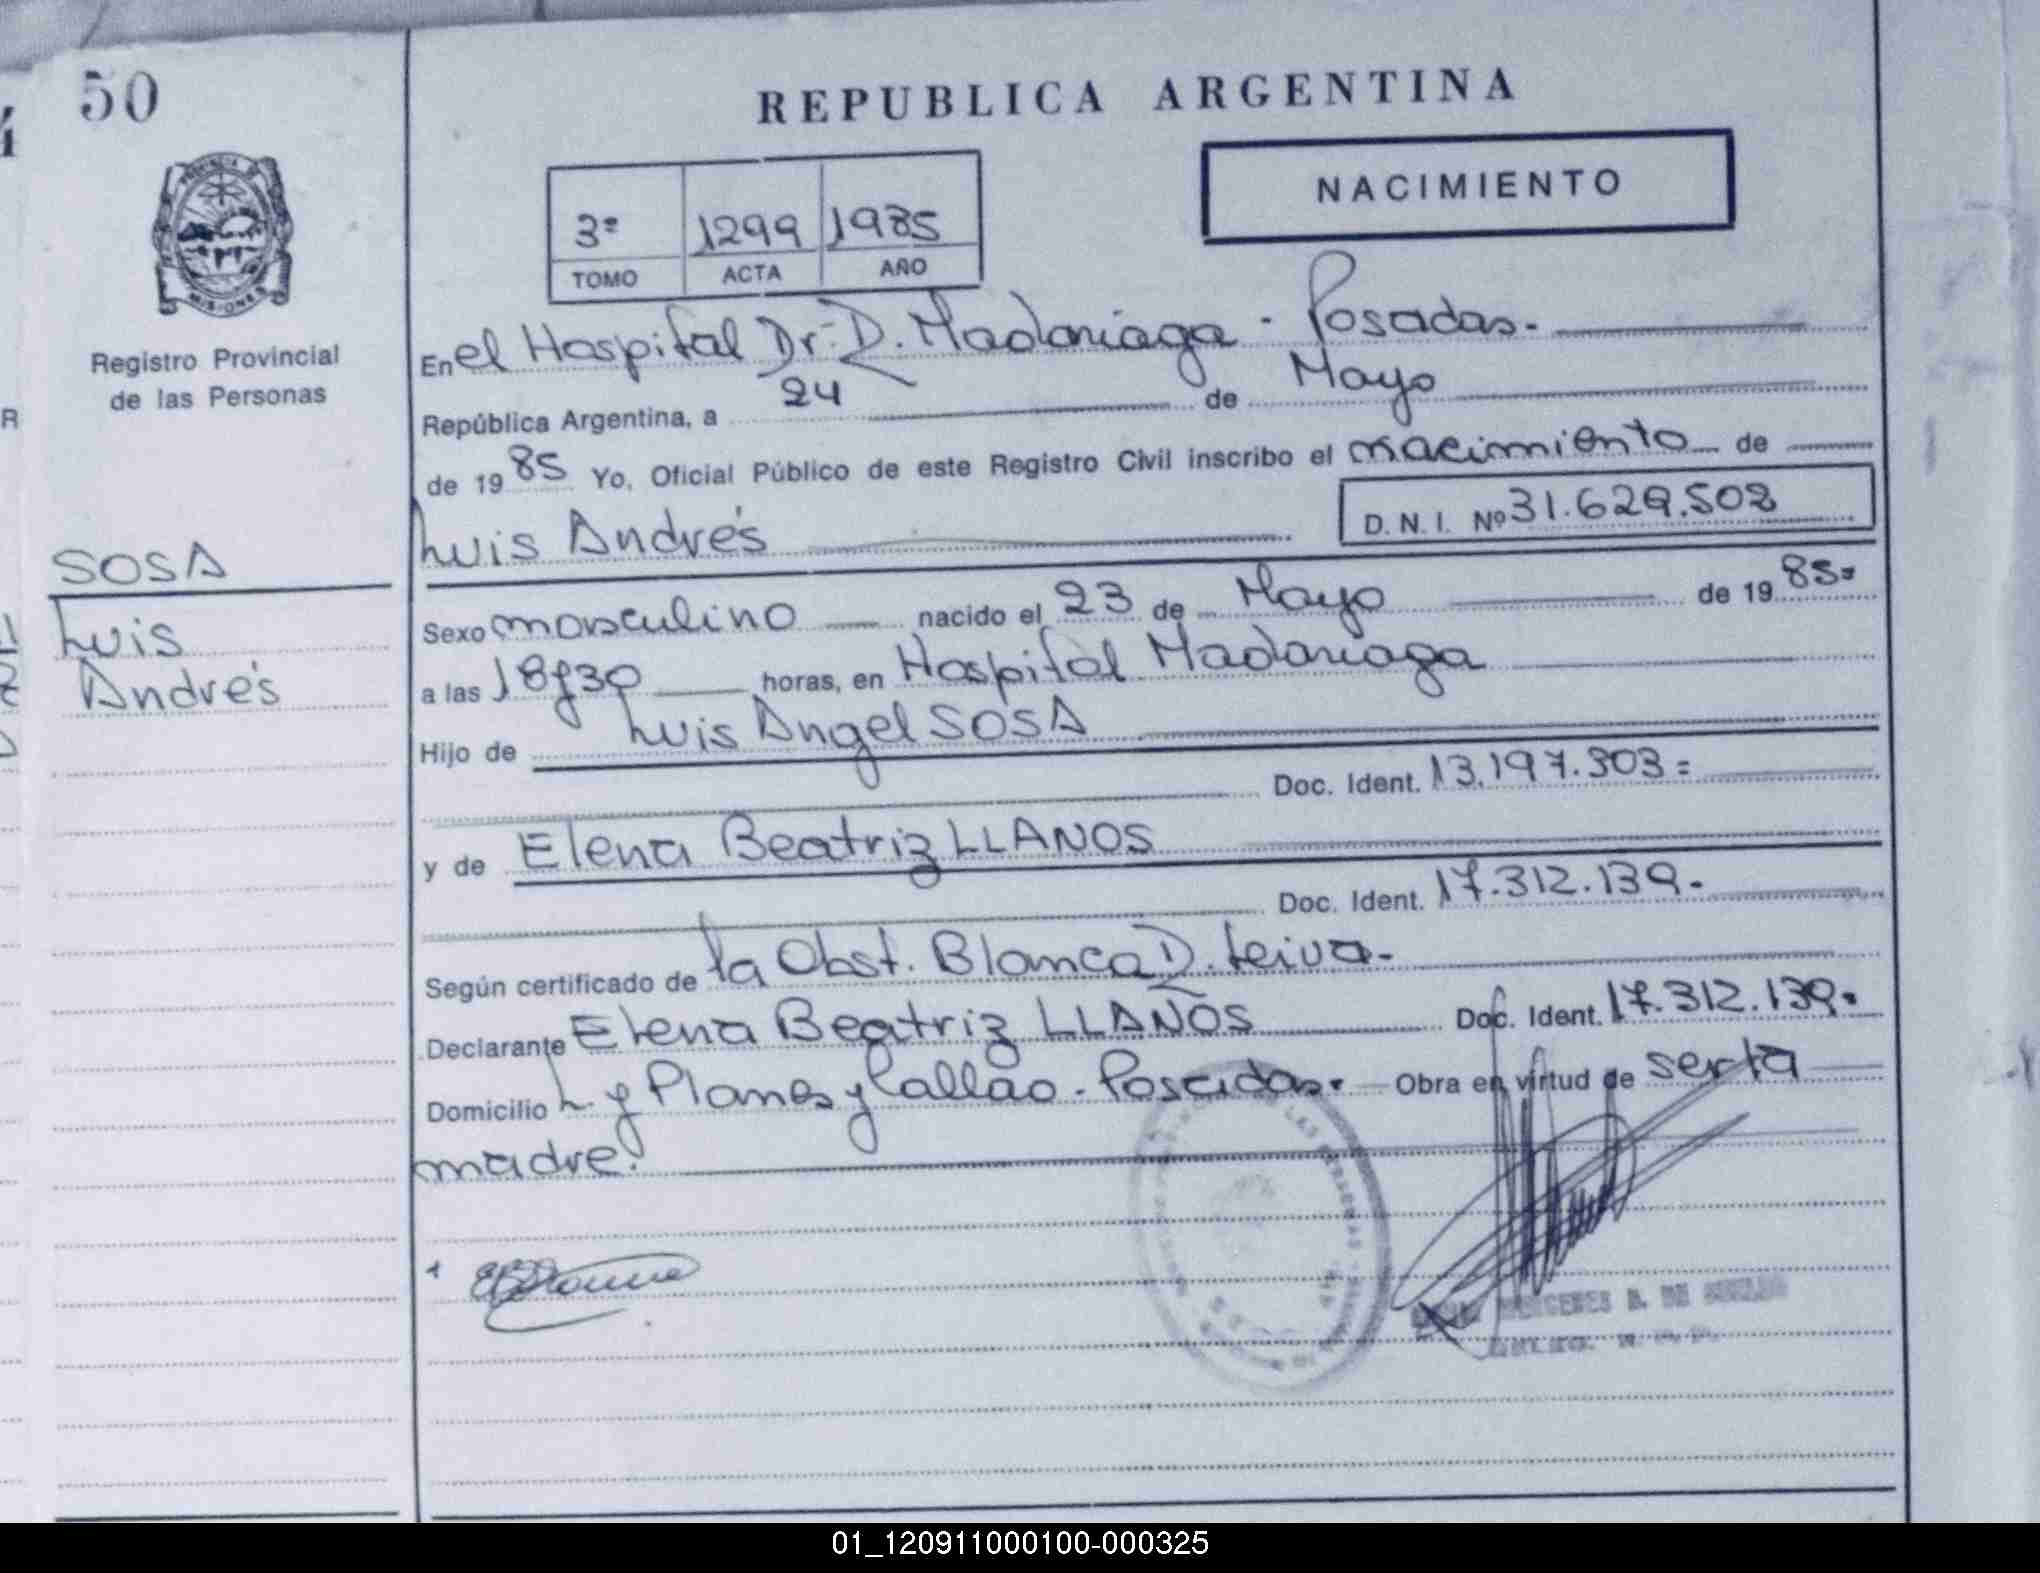 50
REPUBLICA ARGENTINA
NACIMIENTO
3º 1299 1985
TOMO ACTA AÑO
MISIONES
Registro Provincial
de las Personas
SOSA
Luis
Andrés
En el Hospital Dr. R. Madariaga - Posadas.
República Argentina, a 24 de Mayo
de 1985 Yo, Oficial Público de este Registro Civil inscribo el nacimiento de
Luis Andrés D.N.I. Nº 31.629.502
Sexo masculino nacido el 23 de Mayo de 1985=
a las 18y30 horas, en Hospital Madariaga
Hijo de Luis Angel SOSA
Doc. Ident. 13.197.303=
y de Elena Beatriz LLANOS
Doc. Ident. 17.312.139.
Según certificado de la Obst. Blanca D. Leiva.
Declarante Elena Beatriz LLANOS Doc. Ident. 17.312.139.
Domicilio L. y Planes y Callao - Posadas. Obra en virtud de ser la
madre.
MERCEDES B. DE
01_120911000100-000325